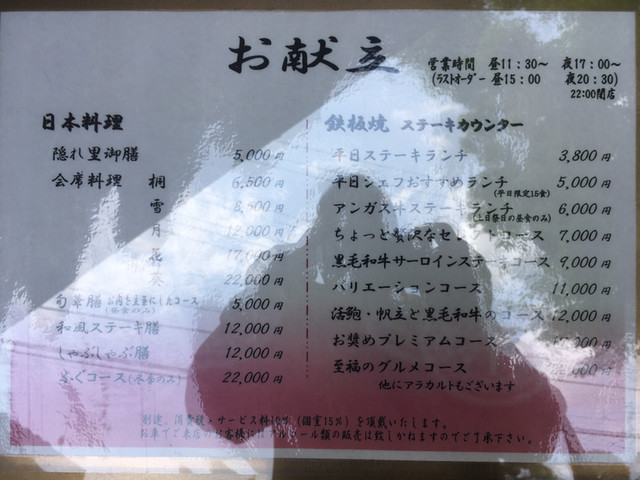 お献立
営業時間 昼11:30〜 夜17:00〜
(ラストオーダー 昼15:00 夜20:30)
22:00閉店
日本料理
隠れ里御膳 5,000円
会席料理 桐 6,500円
雪 8,500円
月 12,000円
花 17,000円
葵 22,000円
旬菜膳 お肉を主菜にしたコース 5,000円
(昼食のみ)
和風ステーキ膳 12,000円
しゃぶしゃぶ膳 12,000円
ふぐコース(冬季のみ) 22,000円
鉄板焼 ステーキカウンター
平日ステーキランチ 3,800円
平日シェフおすすめランチ 5,000円
(平日限定15食)
アンガス牛ステーキランチ 6,000円
(土日祭日の昼食のみ)
ちょっと贅沢なセレクトコース 7,000円
黒毛和牛サーロインステーキコース 9,000円
バリエーションコース 11,000円
活鮑・帆立と黒毛和牛のコース 12,000円
お奨めプレミアムコース 円
至福のグルメコース 円
他にアラカルトもございます
別途、消費税・サービス料10%(個室15%)を頂戴いたします。
お車でご来店のお客様にはアルコール類の販売は致しかねますのでご了承下さい。